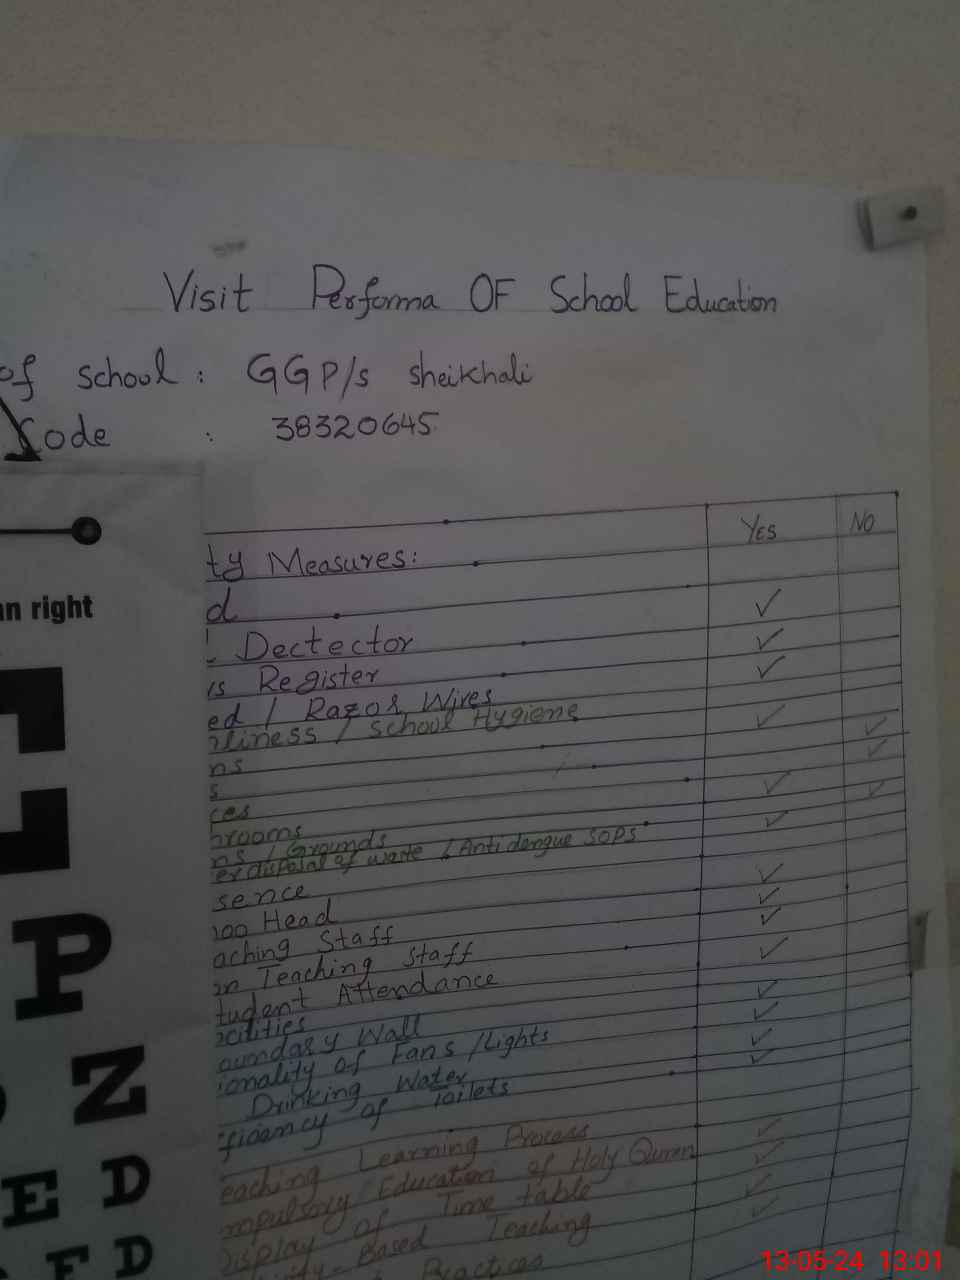 Visit Performa OF School Education
of school : GGP/s sheikhali
Code : 38320645
YES NO
ty Measures:
d
Dectector
is Register
ed / Razor Wires
liness / School Hygiene
ns
s
ces
rooms
ns / Grounds
er disposal of waste / Anti dengue SOPs
sence
ool Head
aching Staff
on Teaching Staff
tudent Attendance
cilities
oundary Wall
ionality of Fans / Lights
Drinking Water
fficiency of Toilets
eaching Learning Process
mpulsory Education of Holy Quran
Display of Time table
ity-Based Teaching
Practices
an right
P
Z
E D
F D
13-05-24 13:01